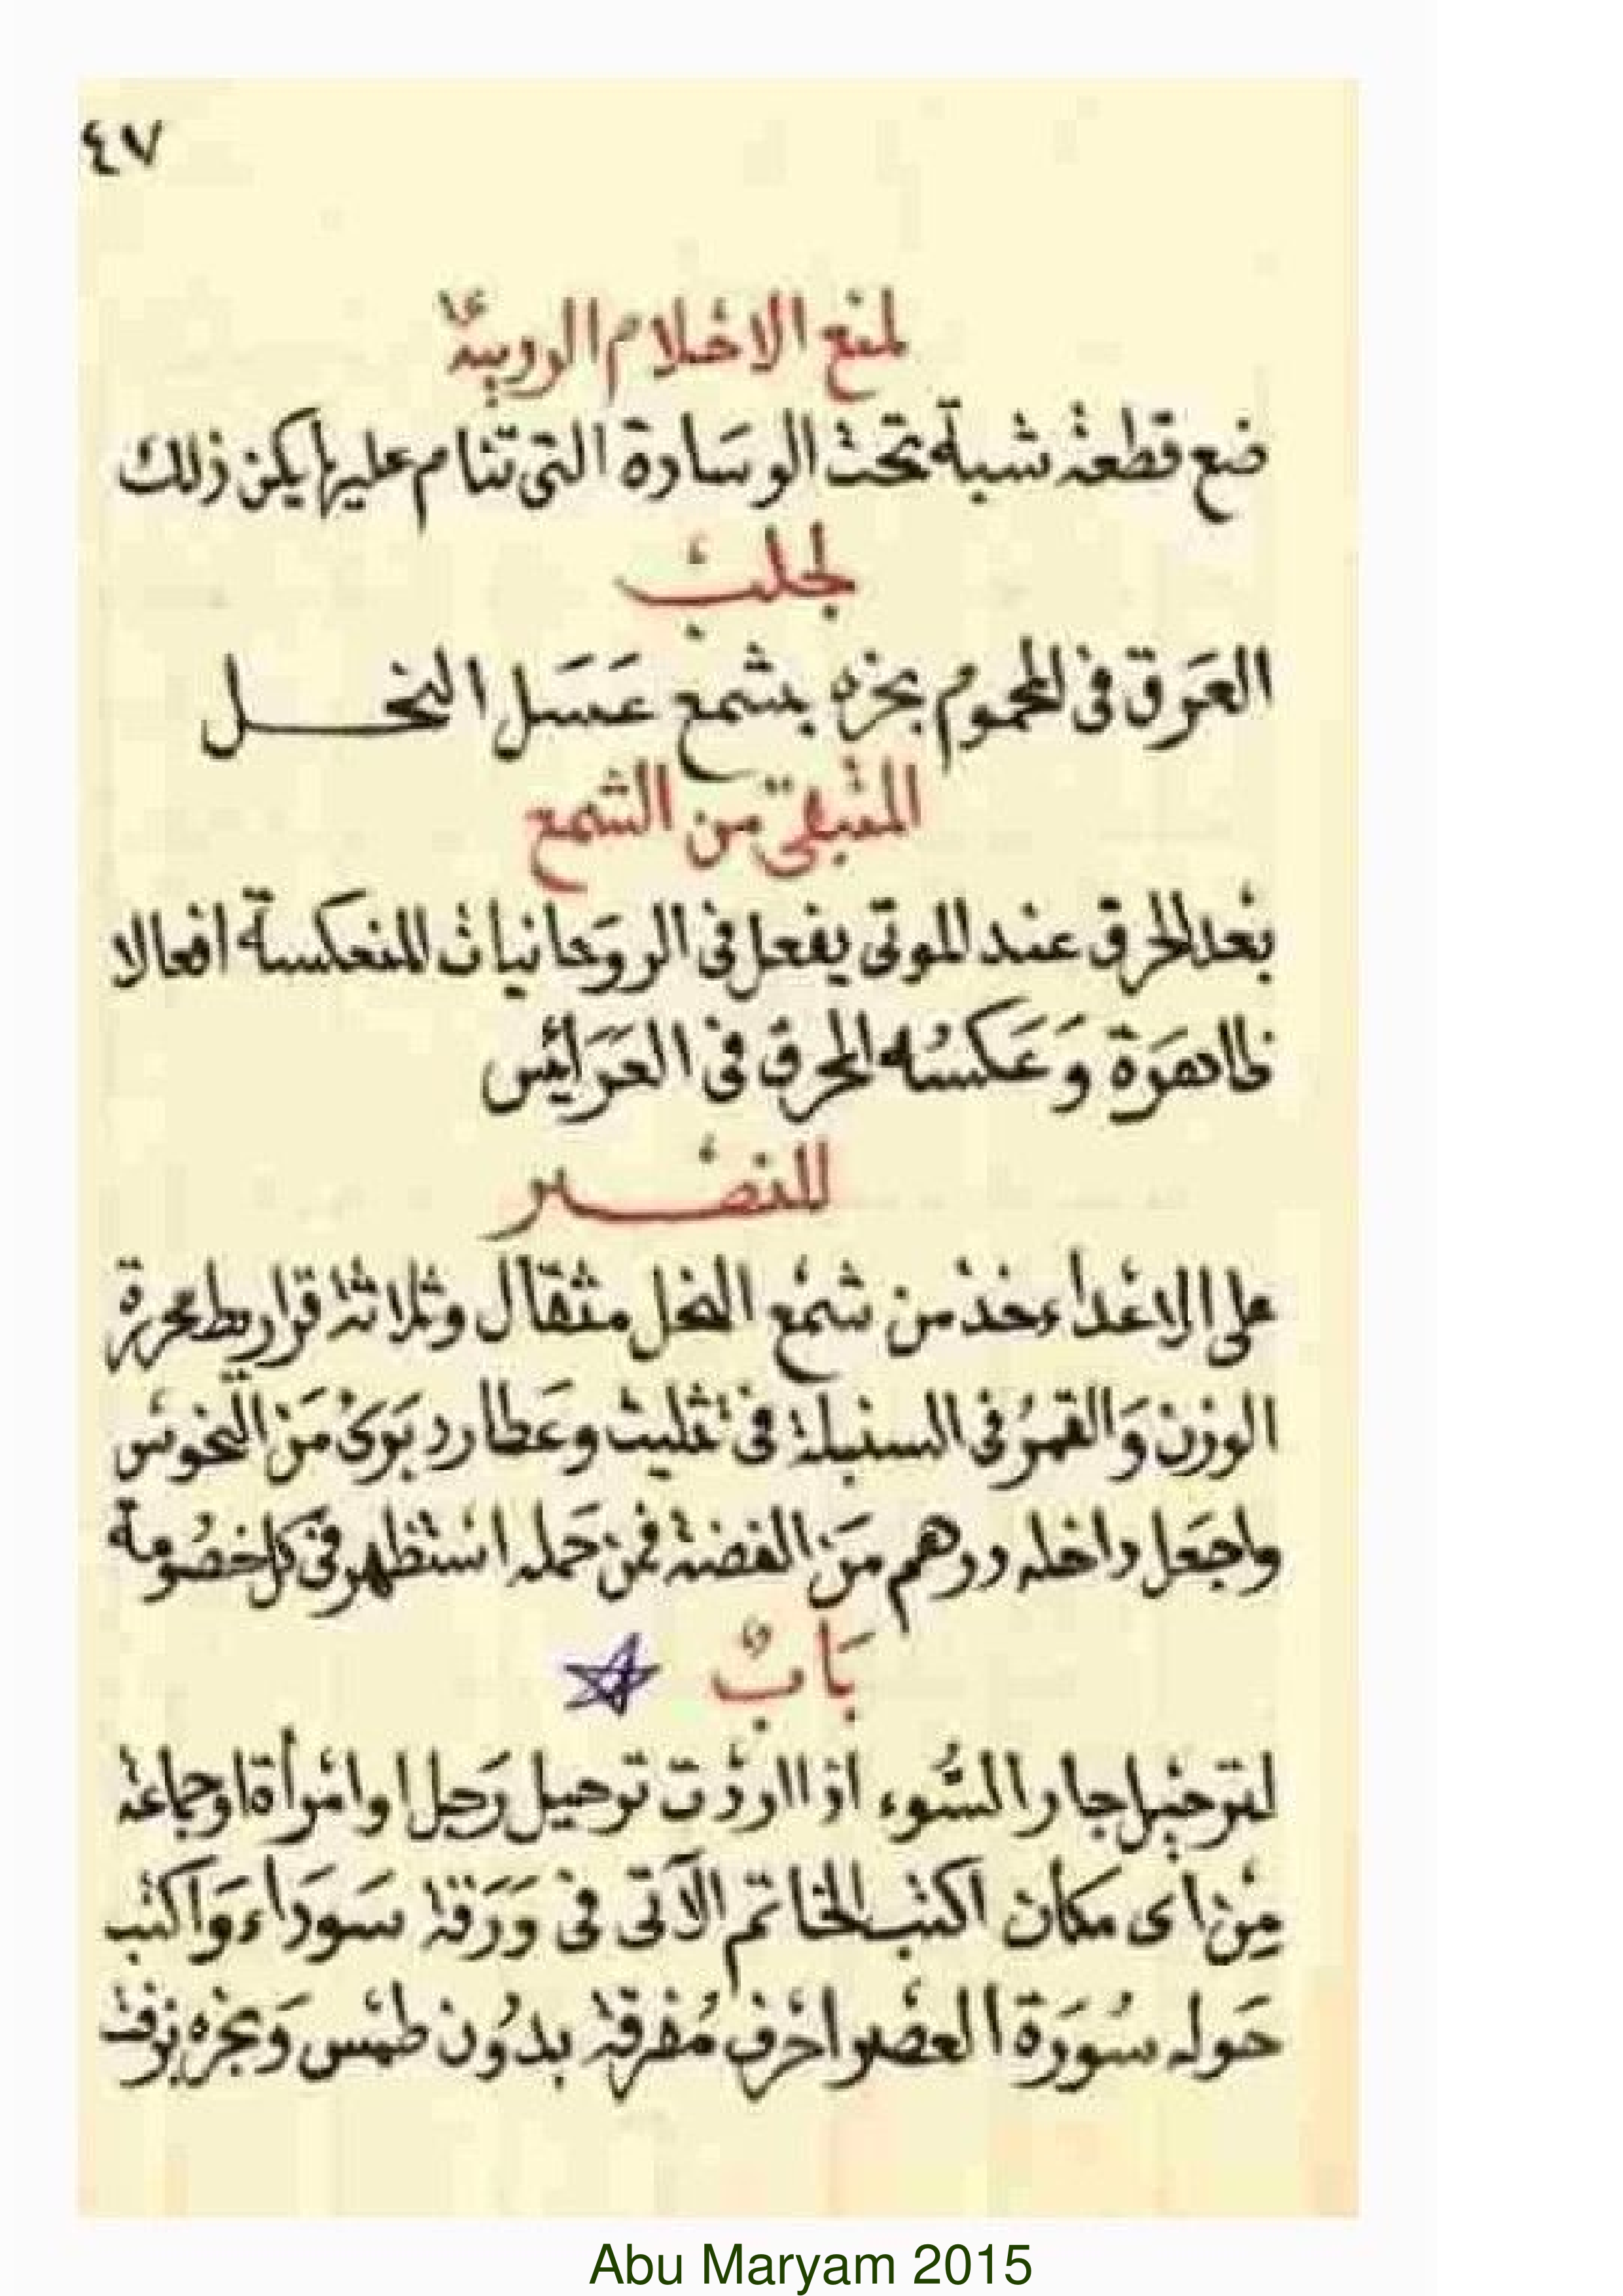 ٤٧
لمنع الاحلام الرديئة
ضع قطعة شبة تحت الوسادة التى تنام عليها يكن ذلك
لجلب
العرق فى المحموم بخره بشمع عسل النحل
المتبقى من الشمع
بعد الحرق عند الموتى يفعل فى الروحانيات المنعكسة افعالا
ظاهرة وعكسه الحرق فى العرائس
للنصر
على الاعداء خذ من شمع النحل مثقال وثلاثة قراريط محررة
الوزن والقمر فى السنبلة فى تثليث وعطارد برئ من النحوس
واجعل داخله درهم من الفضة فمن حمله استظهر فى كل خصومة
باب
لترحيل جار السوء اذا اردت ترحيل رجل او امرأة او جماعة
من اى مكان اكتب الخاتم الآتى فى ورقة سوداء واكتب
حوله سورة العصر احرف مفرقة بدون طمس وبخره بزفت
Abu Maryam 2015